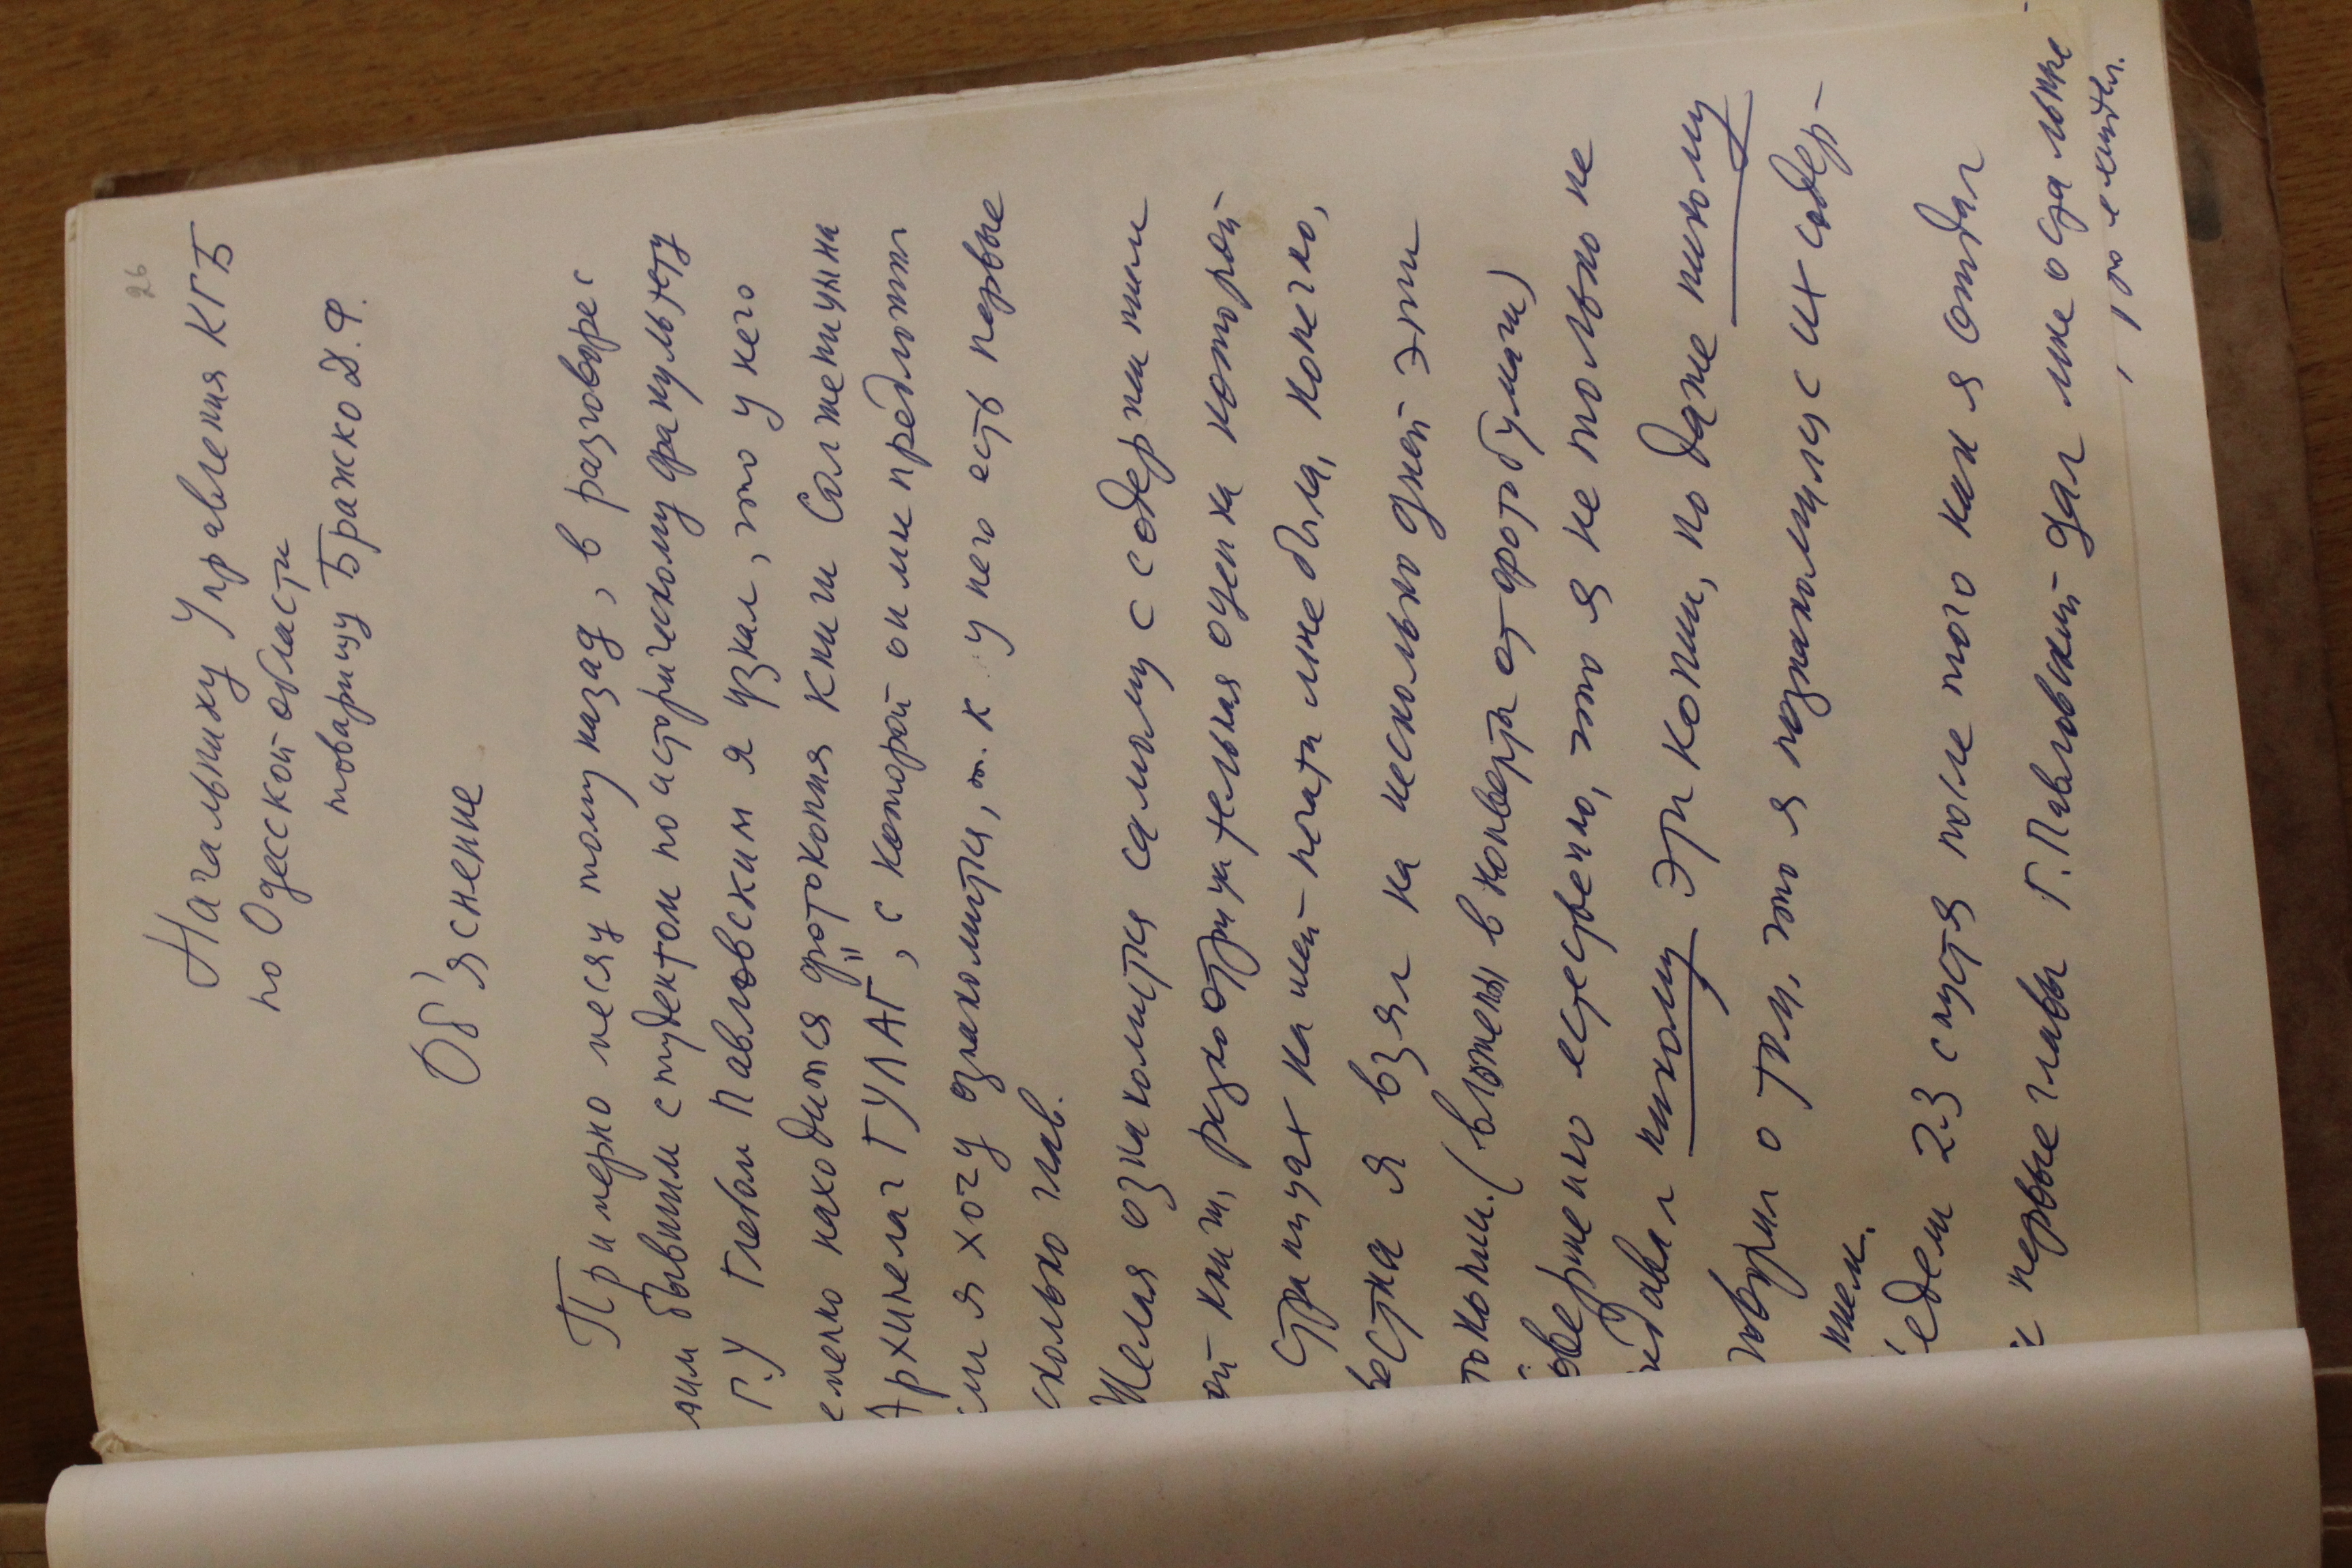 26
Начальнику Управления КГБ
по Одесской области
товарищу Бражко Д.Ф.
Об'яснение
Примерно месяц тому назад, в разговоре с
бывшим студентом по историческому факультету
Г.У Глебом Павловским я узнал, что у него
еменно находится фотокопия книги Солженицына
Архипелаг ГУЛАГ", с которой он мне предложил
сли я хочу ознакомится, т.к у него есть первые
сколько глав.
Желая ознакомится самому с содержанием
ой книги, резко отрицательная оценка которой
страницах нашей печати мне была, конечно,
вестна я взял на несколько дней эти
токопии. (вложены в конверты от фотобумаги)
Совершенно естественно, что я не только не
едавал никому эти копии, но даже никому
говорил о том, что я познакомился с их содер-
нием.
едели 2-3 спустя после того как я отдал
и первые главы Г. Павловский дал мне остальные